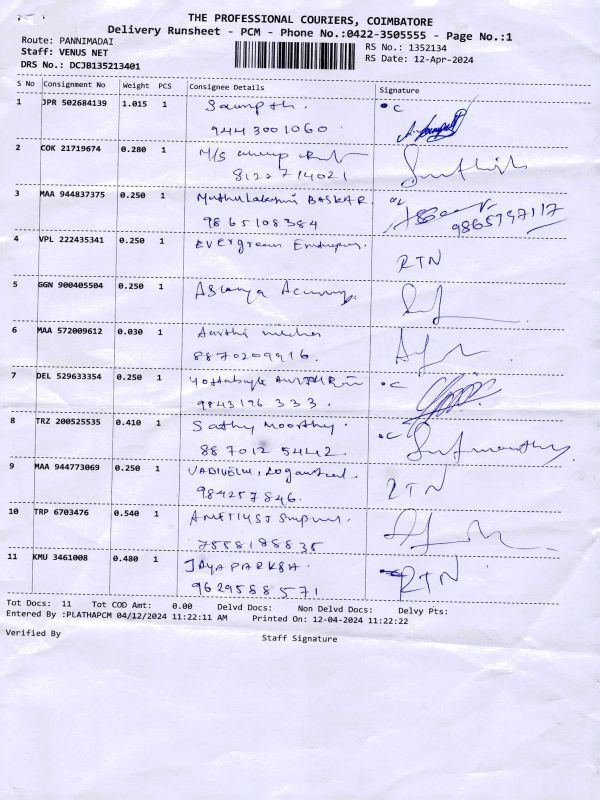 THE PROFESSIONAL COURIERS, COIMBATORE
Delivery Runsheet - PCM - Phone No.:0422-3505555 - Page No.:1
Route: PANNIMADAI
RS No.: 1352134
Staff: VENUS NET
RS Date: 12-Apr-2024
DRS No.: DCJB135213401
S No Consignment No Weight PCS Consignee Details Signature
1 JPR 502684139 1.015 1 Sampth.
9443001060
2 COK 21719674 0.280 1 M/S
8122714021
3 MAA 944837375 0.250 1 Muthulakshmi BASKAR
9865108384 9865797117
4 VPL 222435341 0.250 1 Evergreen
RTN
5 GGN 900405504 0.250 1
6 MAA 572009612 0.030 1 Aarthi
8870209916.
7 DEL 529633354 0.250 1
9843196333.
8 TRZ 200525535 0.410 1 Sathy Moorthy.
887012 5442.
9 MAA 944773069 0.250 1 VADIVELM,
984257846. RTN
10 TRP 6703476 0.540 1
7558188838
11 KMU 3461008 0.480 1 JAYAPARKSH.
9629588571 RTN
Tot Docs: 11 Tot COD Amt: 0.00 Delvd Docs: Non Delvd Docs: Delvy Pts:
Entered By :PLATHAPCM 04/12/2024 11:22:11 AM Printed On: 12-04-2024 11:22:22
Verified By
Staff Signature